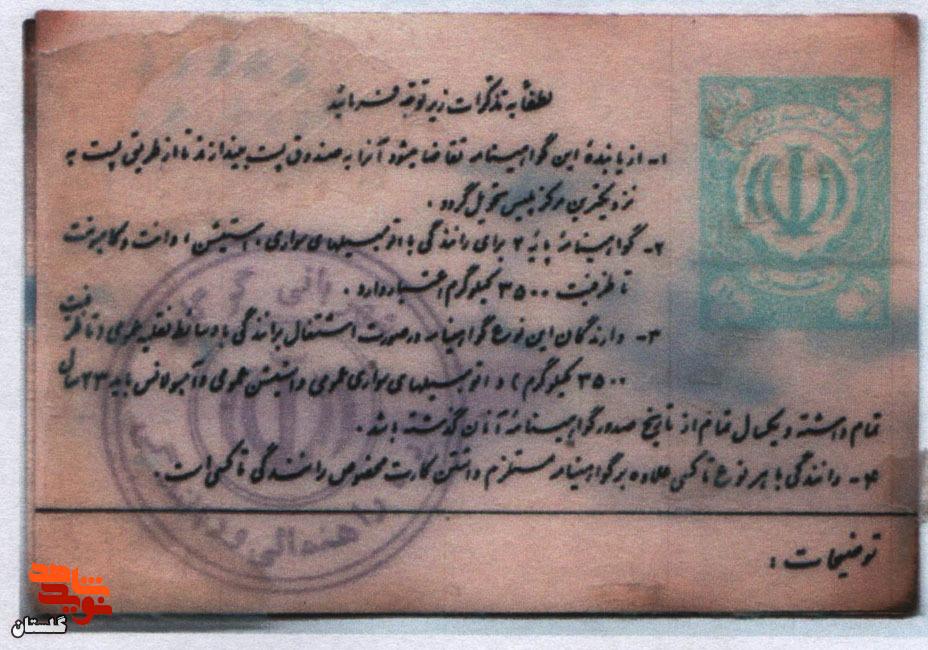 لطفاً به تذکرات زیر توجه فرمائید
۱- از یابندهٔ این گواهینامه تقاضا میشود آنرا به صندوق پست بیندازند تا از طریق پست به
نزدیکترین مرکز پلیس تحویل گردد.
۲- گواهینامهٔ پایهٔ ۲ برای رانندگی با اتومبیلهای سواری، استیشن، وانت و کامیونت
تا ظرفیت ۳۵۰۰ کیلوگرم اعتبار دارد.
۳- دارندگان این نوع گواهینامه در صورت اشتغال برانندگی با وسائط نقلیه عمومی و تا ظرفیت
۳۵۰۰ کیلوگرم) و اتومبیلهای سواری عمومی و استیشن عمومی و آمبولانس باید ۲۳ سال
تمام داشته و یکسال تمام از تاریخ صدور گواهینامهٔ آنان گذشته باشد.
۴- رانندگی با هر نوع تاکسی علاوه بر گواهینامه مستلزم داشتن کارت مخصوص رانندگی تاکسی است.
توضیحات:
راهنمائی و رانندگی
نوید شاهد
گلستان